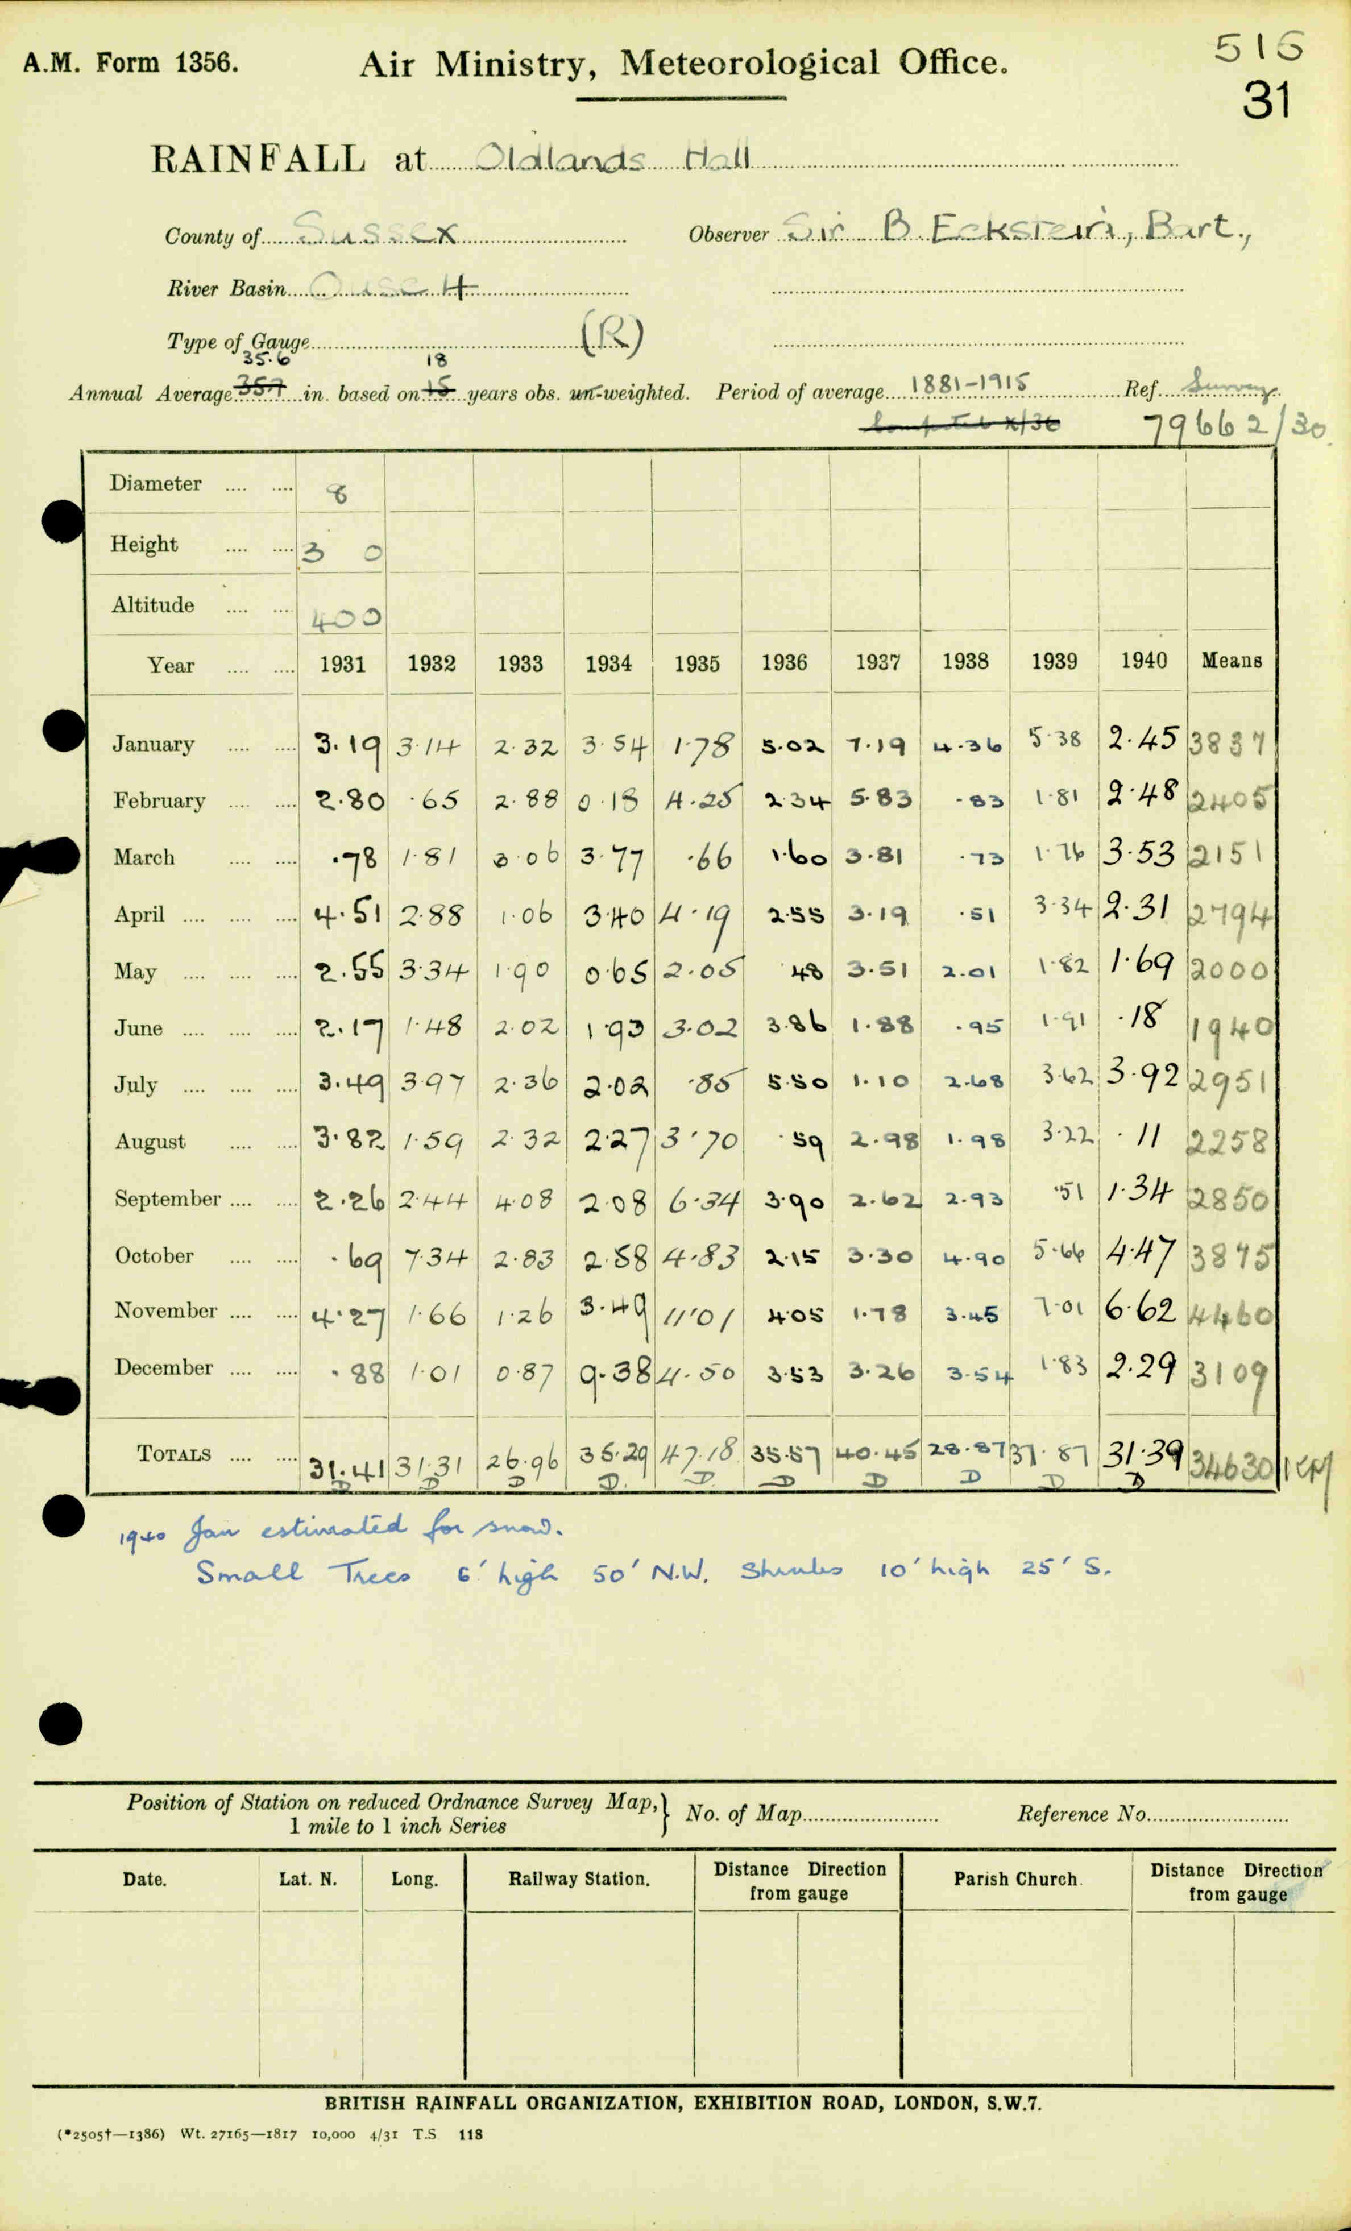 A.M. Form 1356. Air Ministry, Meteorological Office. 516
31
RAINFALL at Oldlands Hall
County of Sussex Observer Sir B. Eckstein, Bart.,
River Basin Ouse 4
Type of Gauge (R)
35.6 18
Annual Average 357 in. based on 15 years obs. un-weighted. Period of average 1881-1915 Ref. Survey
Computed X/36 79662/30
Diameter .... .... 8
Height .... .... 3 0
Altitude .... .... 400
Year .... .... 1931 1932 1933 1934 1935 1936 1937 1938 1939 1940 Means
January .... .... 3.19 3.14 2.32 3.54 1.78 5.02 7.19 4.36 5.38 2.45 3837
February .... .... 2.80 .65 2.88 0.18 4.25 2.34 5.83 .83 1.81 2.48 2405
March .... .... .78 1.81 3.06 3.77 .66 1.60 3.81 .73 1.76 3.53 2151
April .... .... .... 4.51 2.88 1.06 3.40 4.19 2.55 3.19 .51 3.34 2.31 2794
May .... .... .... 2.55 3.34 1.90 0.65 2.05 48 3.51 2.01 1.82 1.69 2000
June .... .... .... 2.17 1.48 2.02 1.93 3.02 3.86 1.88 .95 1.91 .18 1940
July .... .... .... 3.49 3.97 2.36 2.02 .85 5.50 1.10 2.68 3.62 3.92 2951
August .... .... 3.82 1.59 2.32 2.27 3.70 .59 2.98 1.98 3.22 .11 2258
September .... .... 2.26 2.44 4.08 2.08 6.34 3.90 2.62 2.93 .51 1.34 2850
October .... .... .69 7.34 2.83 2.58 4.83 2.15 3.30 4.90 5.66 4.47 3875
November .... .... 4.27 1.66 1.26 3.49 11.01 4.05 1.78 3.45 7.01 6.62 4460
December .... .... .88 1.01 0.87 9.38 4.50 3.53 3.26 3.54 1.83 2.29 3109
TOTALS .... .... 31.41 31.31 26.96 35.29 47.18 35.57 40.45 28.87 37.87 31.39 34630
D D D D. D. D D D D D
1940 Jan estimated for snow.
Small Trees 6' high 50' N.W. Shrubs 10' high 25' S.
Position of Station on reduced Ordnance Survey Map, 1 mile to 1 inch Series } No. of Map Reference No.
Date. Lat. N. Long. Railway Station. Distance Direction from gauge Parish Church. Distance Direction from gauge
BRITISH RAINFALL ORGANIZATION, EXHIBITION ROAD, LONDON, S.W.7.
(*2505†—1386) Wt. 27165—1817 10,000 4/31 T.S 118